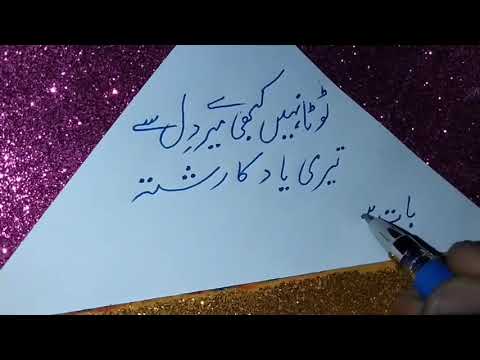 ٹوٹا نہیں کبھی میرے دِل سے
تیری یاد کا رشتہ
بات